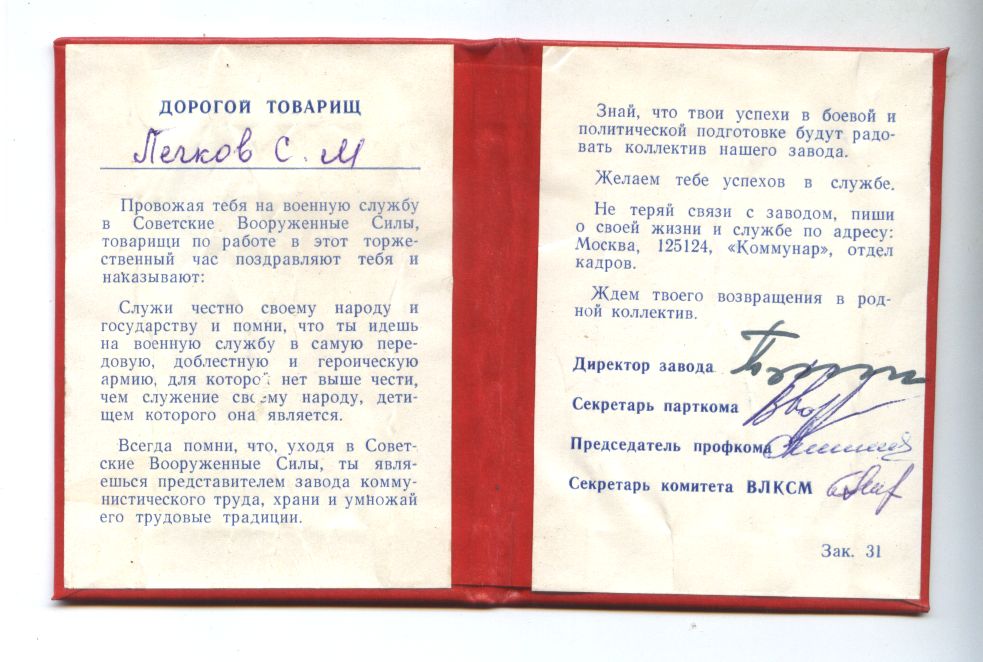 ДОРОГОЙ ТОВАРИЩ
Печков С. М
Провожая тебя на военную службу
в Советские Вооруженные Силы,
товарищи по работе в этот торже-
ственный час поздравляют тебя и
наказывают:
Служи честно своему народу и
государству и помни, что ты идешь
на военную службу в самую пере-
довую, доблестную и героическую
армию, для которой нет выше чести,
чем служение своему народу, дети-
щем которого она является.
Всегда помни, что, уходя в Совет-
ские Вооруженные Силы, ты явля-
ешься представителем завода комму-
нистического труда, храни и умножай
его трудовые традиции.
Знай, что твои успехи в боевой и
политической подготовке будут радо-
вать коллектив нашего завода.
Желаем тебе успехов в службе.
Не теряй связи с заводом, пиши
о своей жизни и службе по адресу:
Москва, 125124, «Коммунар», отдел
кадров.
Ждем твоего возвращения в род-
ной коллектив.
Директор завода
Секретарь парткома
Председатель профкома
Секретарь комитета ВЛКСМ
Зак. 31